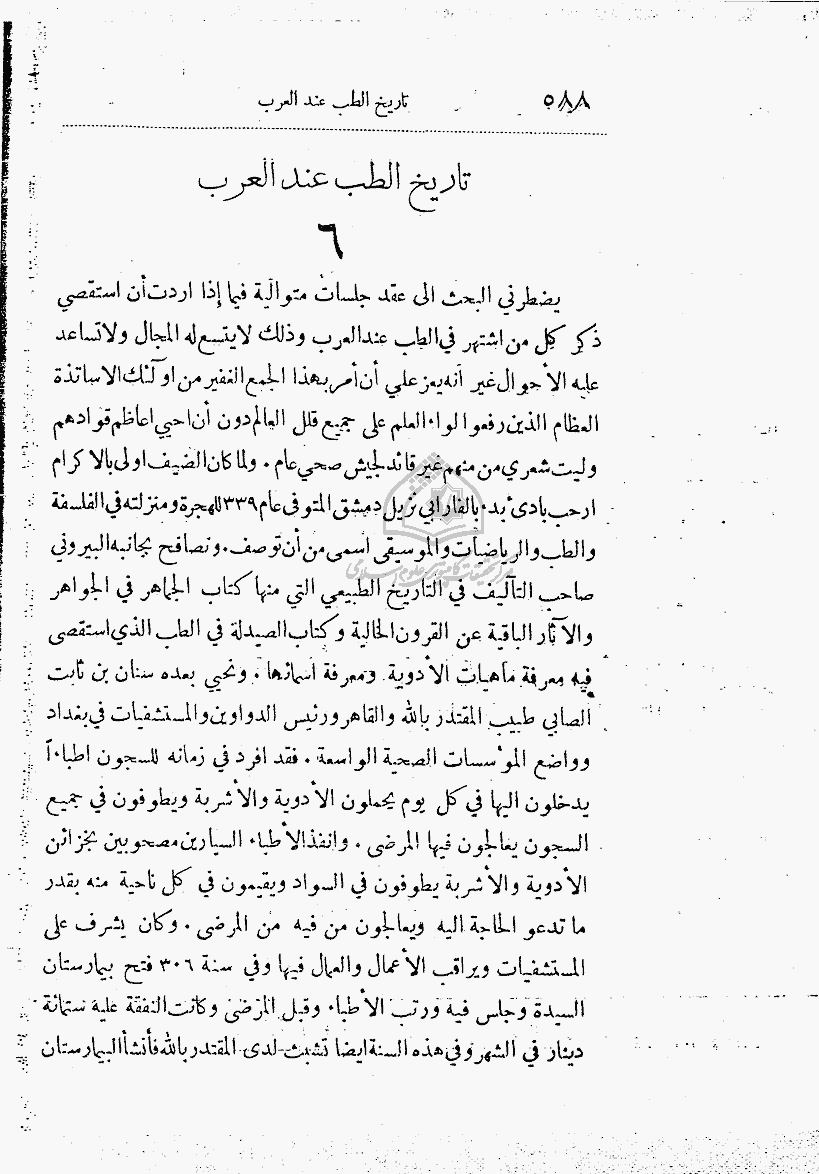 ٥٨٨ تاريخ الطب عند العرب
تاريخ الطب عند العرب
٦
يضطرني البحث الى عقد جلسات متوالية فيما إذا اردت أن استقصي
ذكر كل من اشتهر في الطب عند العرب وذلك لا يتسع له المجال ولا تساعد
عليه الأحوال غير أنه يعز علي أن أمر بهذا الجمع الغفير من اولئك الاساتذة
العظام الذين رفعوا لواء العلم على جميع قلل العالم دون أن احيي اعاظم قوادهم
وليت شعري من منهم غير قائد لجيش صحي عام . ولما كان الضيف اولى بالاكرام
ارحب بادئ بدء بالفارابي نزيل دمشق المتوفى عام ٣٣٩ للهجرة ومنزلته في الفلسفة
والطب والرياضيات والموسيقى اسمى من أن توصف . ونصافح بجانبه البيروني
صاحب التآليف في التاريخ الطبيعي التي منها كتاب الجماهر في الجواهر
والآثار الباقية عن القرون الخالية وكتاب الصيدلة في الطب الذي استقصى
فيه معرفة ماهيات الأدوية ومعرفة اسمائها . ونحيي بعده سنان بن ثابت
الصابي طبيب المقتدر بالله والقاهر ورئيس الدواوين والمستشفيات في بغداد
وواضع المؤسسات الصحية الواسعة . فقد افرد في زمانه للسجون اطباءاً
يدخلون اليها في كل يوم يحملون الأدوية والأشربة ويطوفون في جميع
السجون يعالجون فيها المرضى . وانفذ الأطباء السيارين مصحوبين بخزائن
الأدوية والأشربة يطوفون في السواد ويقيمون في كل ناحية منه بقدر
ما تدعو الحاجة اليه ويعالجون من فيه من المرضى . وكان يشرف على
المستشفيات ويراقب الأعمال والعمال فيها وفي سنة ٣٠٦ فتح بيمارستان
السيدة وجلس فيه ورتب الأطباء وقبل المرضى وكانت النفقة عليه ستمائة
دينار في الشهر وفي هذه السنة ايضا تشبث لدى المقتدر بالله فأنشأ البيمارستان